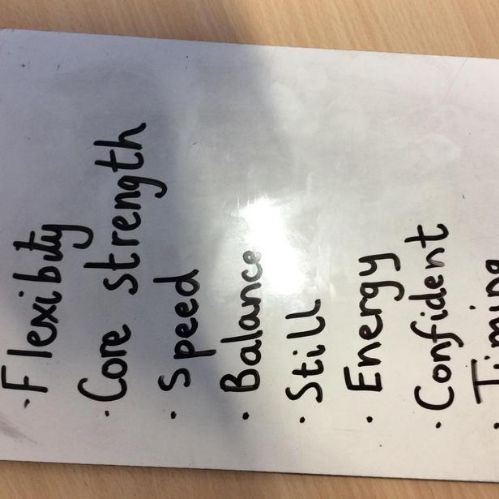 · Flexibity
· Core strength
· Speed
· Balance
· Still
· Energy
· Confident
· Timing